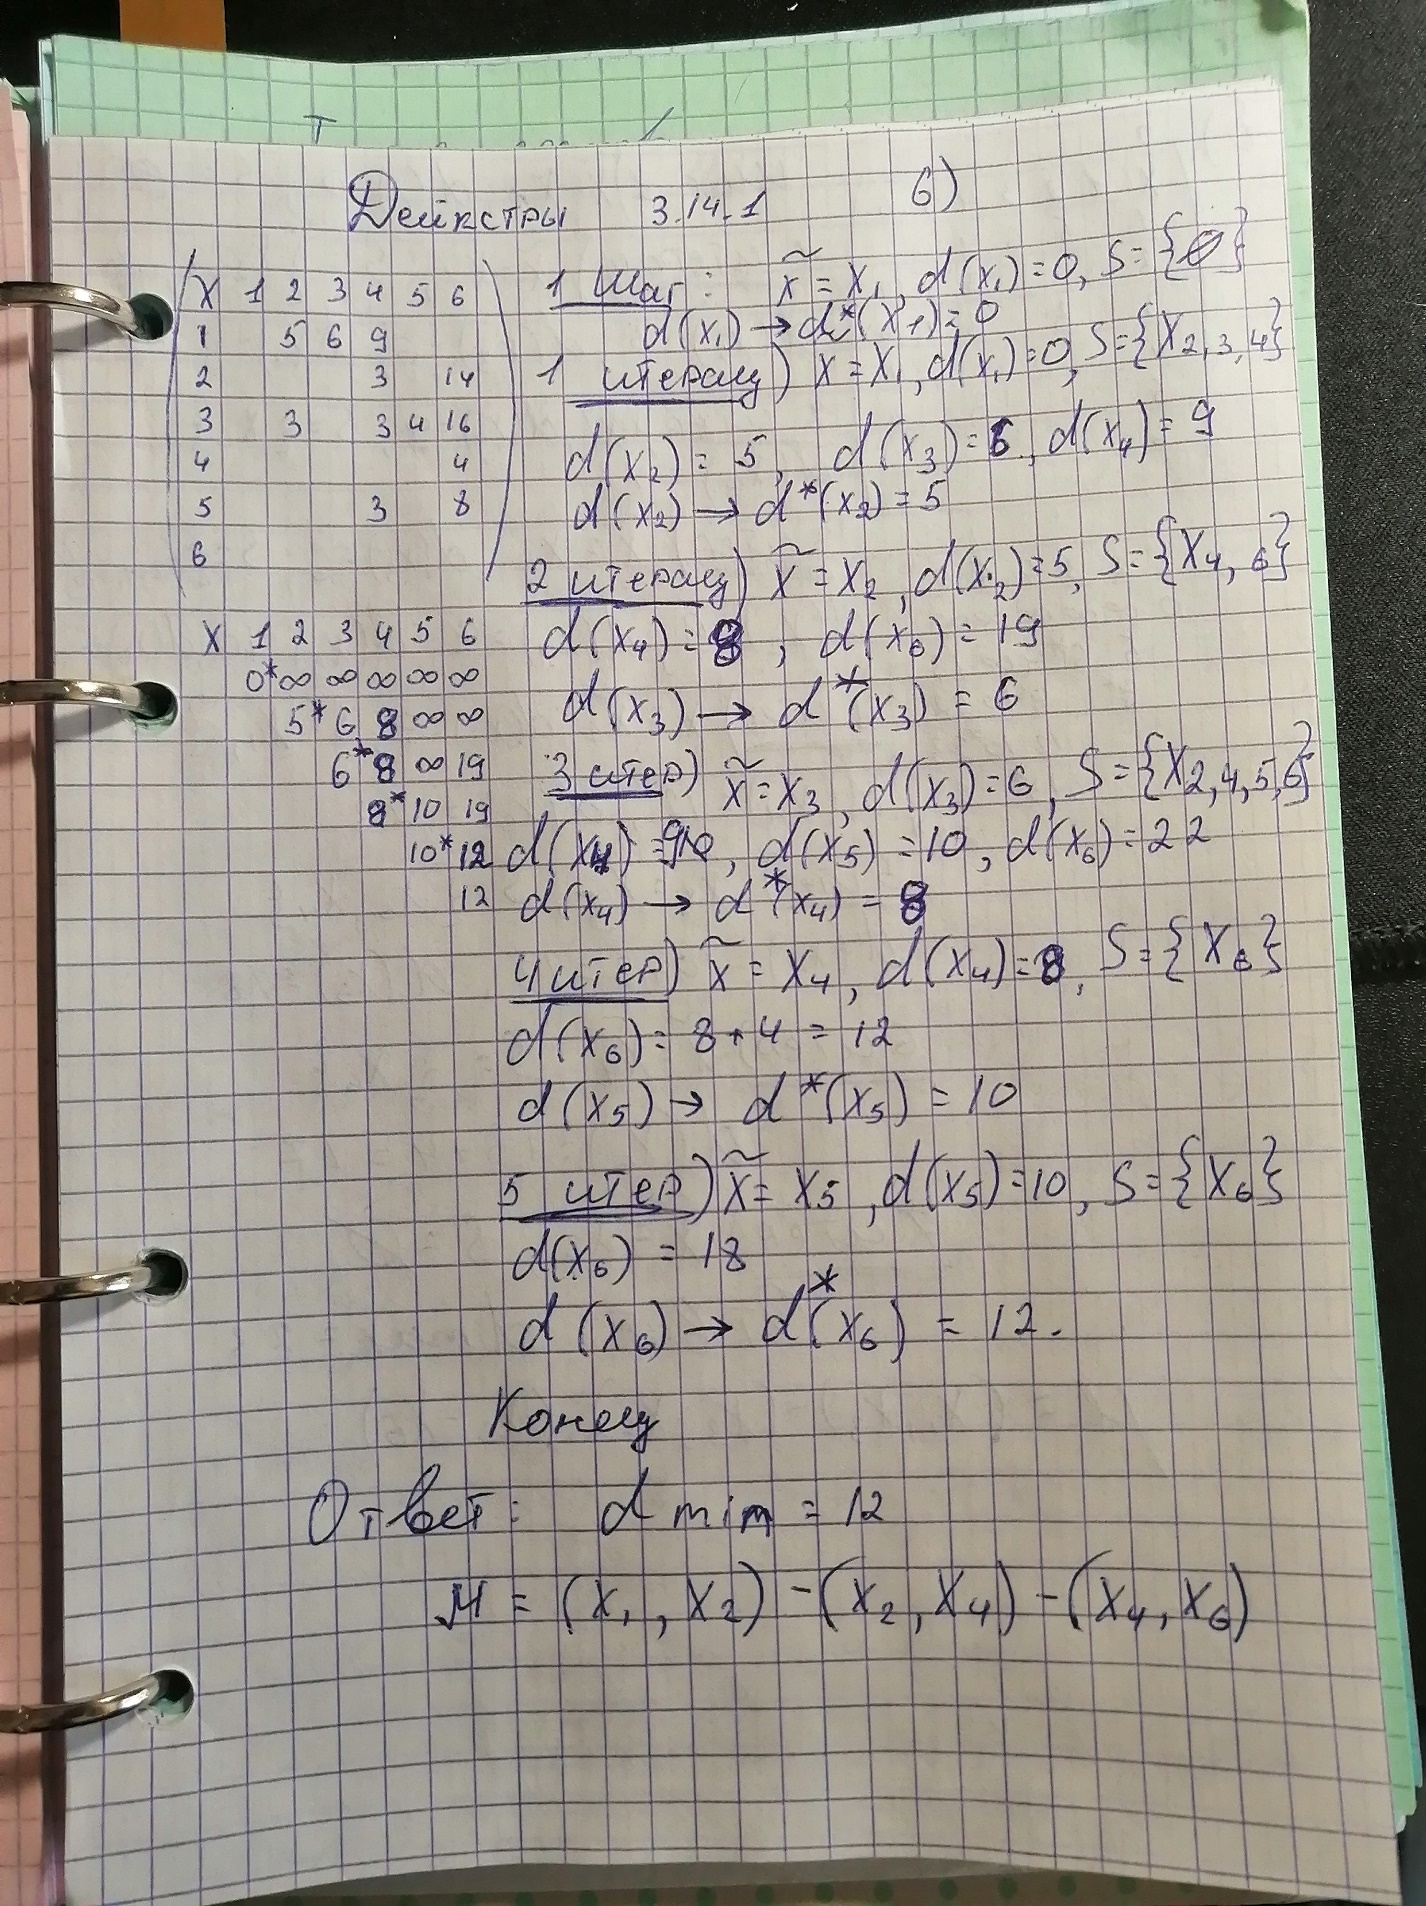 Дейкстры 3.14.1 б)
X 1 2 3 4 5 6
1 5 6 9
2 3 14
3 3 3 4 16
4 4
5 3 8
6
X 1 2 3 4 5 6
0* ∞ ∞ ∞ ∞ ∞
5* 6 8 ∞ ∞
6* 8 ∞ 19
8* 10 19
10* 12
12
1 Шаг: x̃ = x₁, d(x₁) = 0, S = {∅}
d(x₁) → d*(x₁) = 0
1 итерац) x = x₁, d(x₁) = 0, S = {x₂,₃,₄}
d(x₂) = 5, d(x₃) = 6, d(x₄) = 9
d(x₂) → d*(x₂) = 5
2 итерац) x̃ = x₂, d(x₂) = 5, S = {x₄,₆}
d(x₄) = 8, d(x₆) = 19
d(x₃) → d*(x₃) = 6
3 итер) x̃ = x₃, d(x₃) = 6, S = {x₂,₄,₅,₆}
d(x₄) = 9, d(x₅) = 10, d(x₆) = 22
d(x₄) → d*(x₄) = 8
4 итер) x̃ = x₄, d(x₄) = 8, S = {x₆}
d(x₆) = 8 + 4 = 12
d(x₅) → d*(x₅) = 10
5 итер) x̃ = x₅, d(x₅) = 10, S = {x₆}
d(x₆) = 18
d(x₆) → d*(x₆) = 12.
Конец
Ответ: d min = 12
M = (x₁, x₂) - (x₂, x₄) - (x₄, x₆)